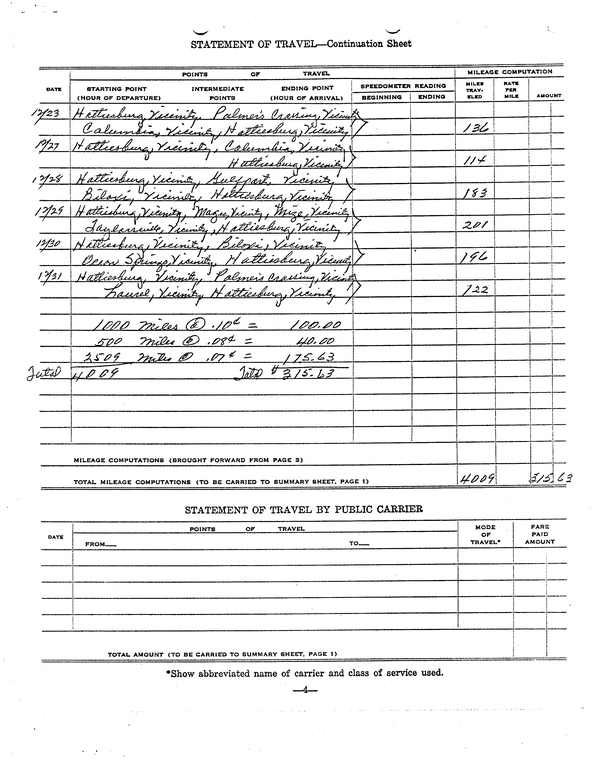 STATEMENT OF TRAVEL—Continuation Sheet
POINTS OF TRAVEL MILEAGE COMPUTATION
DATE STARTING POINT (HOUR OF DEPARTURE) INTERMEDIATE POINTS ENDING POINT (HOUR OF ARRIVAL) SPEEDOMETER READING BEGINNING ENDING MILES TRAVELED RATE PER MILE AMOUNT
12/23 Hattiesburg, Vicinity, Palmers Crossing, Vicinity
Columbia, Vicinity, Hattiesburg, Vicinity 136
12/27 Hattiesburg, Vicinity, Columbia, Vicinity
Hattiesburg, Vicinity 114
12/28 Hattiesburg, Vicinity, Gulfport, Vicinity,
Biloxi, Vicinity, Hattiesburg, Vicinity 183
12/29 Hattiesburg, Vicinity, Magee, Vicinity, Mize, Vicinity
Taylorsville, Vicinity, Hattiesburg, Vicinity 201
12/30 Hattiesburg, Vicinity, Biloxi, Vicinity
Ocean Springs, Vicinity, Hattiesburg, Vicinity 196
12/31 Hattiesburg, Vicinity, Palmers Crossing, Vicinity
Laurel, Vicinity, Hattiesburg, Vicinity 122
1000 Miles @ .10¢ = 100.00
500 Miles @ .08¢ = 40.00
2509 Miles @ .07¢ = 175.63
Total 4009 Total $315.63
MILEAGE COMPUTATIONS (BROUGHT FORWARD FROM PAGE 3)
TOTAL MILEAGE COMPUTATIONS (TO BE CARRIED TO SUMMARY SHEET, PAGE 1) 4009 315.63
STATEMENT OF TRAVEL BY PUBLIC CARRIER
DATE POINTS OF TRAVEL MODE OF TRAVEL* FARE PAID AMOUNT
FROM— TO—
TOTAL AMOUNT (TO BE CARRIED TO SUMMARY SHEET, PAGE 1)
*Show abbreviated name of carrier and class of service used.
—4—